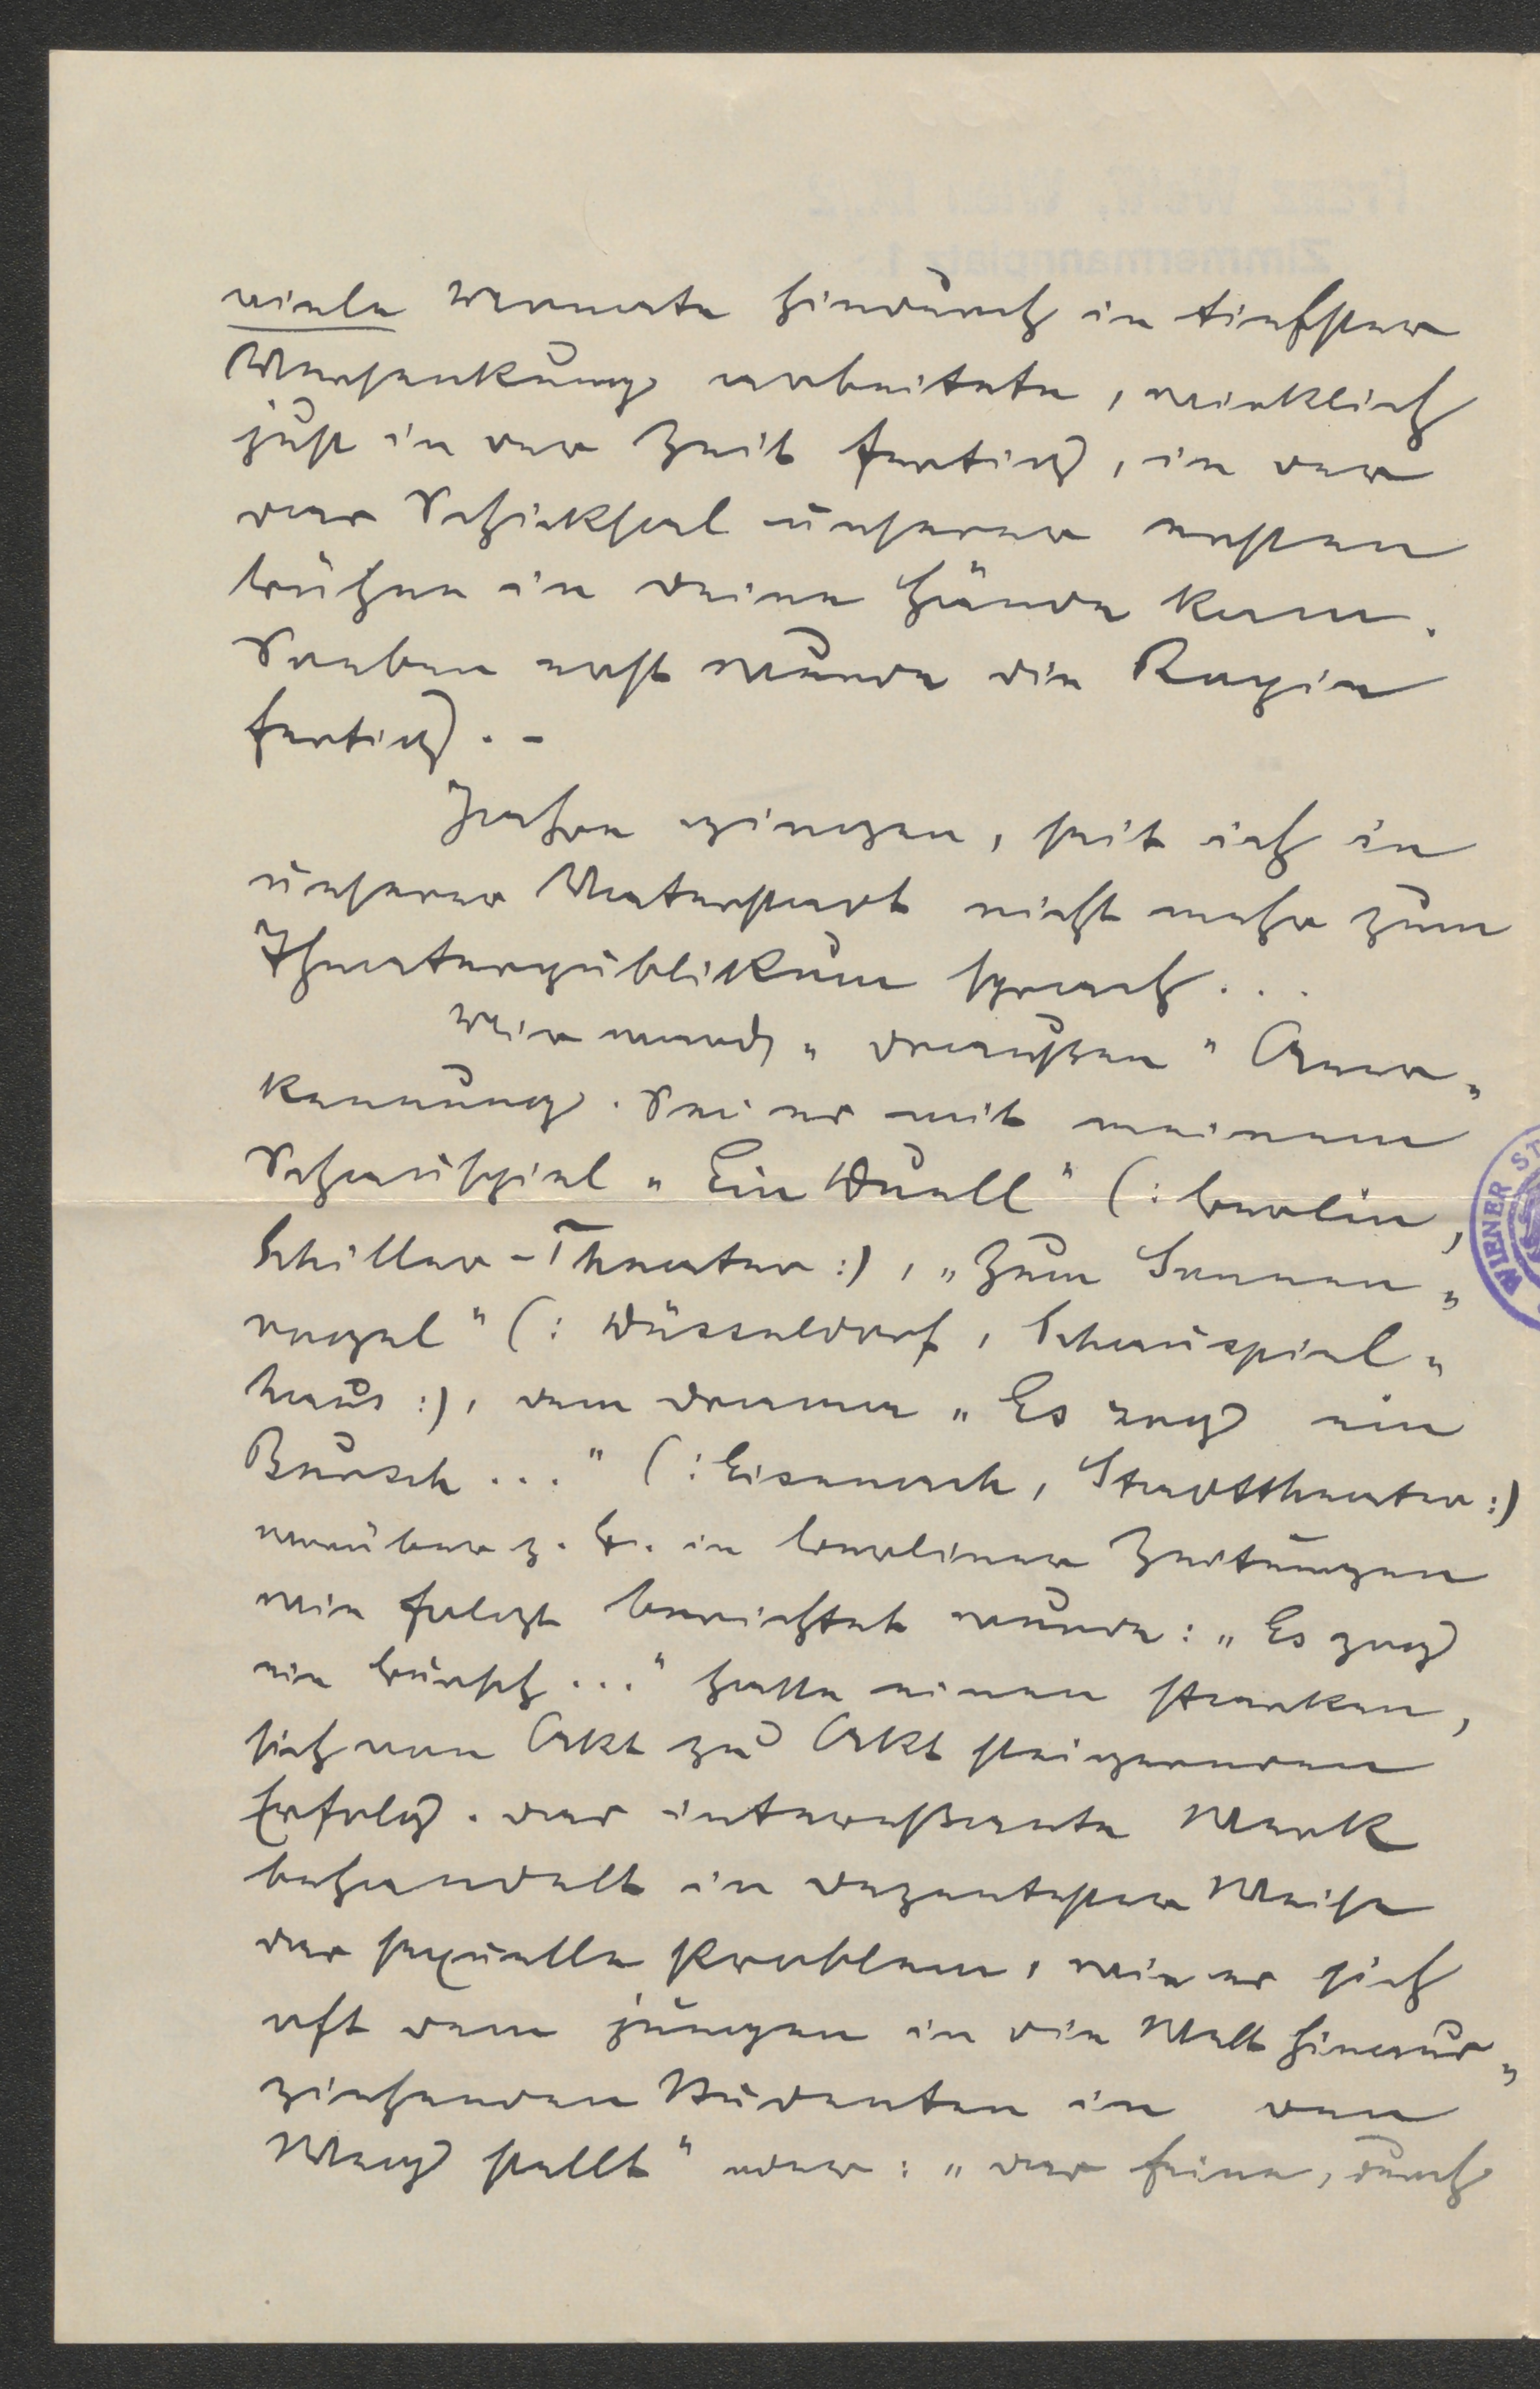 viele Monate hindurch in tiefster
Versenkung arbeitete, wirklich
just in der Zeit fertig, in der
das Schicksal unserer ersten
Bühne in Deine Hände kam.
Soeben erst wurde die Kopie
fertig. -
Jahre gingen, seit ich in
unserer Vaterstadt nicht mehr zum
Theaterpublikum sprach...
Mir ward „draußen" Aner„
kennung. Sei es mit meinem
Schauspiel „Ein Duell" (: Berlin,
Schiller-Theater :), „Zum Sonnen„
vogel" (: Düsseldorf, Schauspiel„
haus :), dem Drama „Es zog ein
Bursch ..." (: Eisenach, Stadttheater :)
worüber z. B. in Berliner Zeitungen
wie folgt berichtet wurde: „Es zog
ein Bursch ..." hatte einen starken,
sich von Akt zu Akt steigernden
Erfolg. Das interessante Werk
behandelt in dezentester Weise
das sexuelle Problem, wie es sich
oft dem jungen in die Welt hinaus„
ziehenden Studenten in den
Weg stellt" oder: „Das feine, durch
WIENER ST